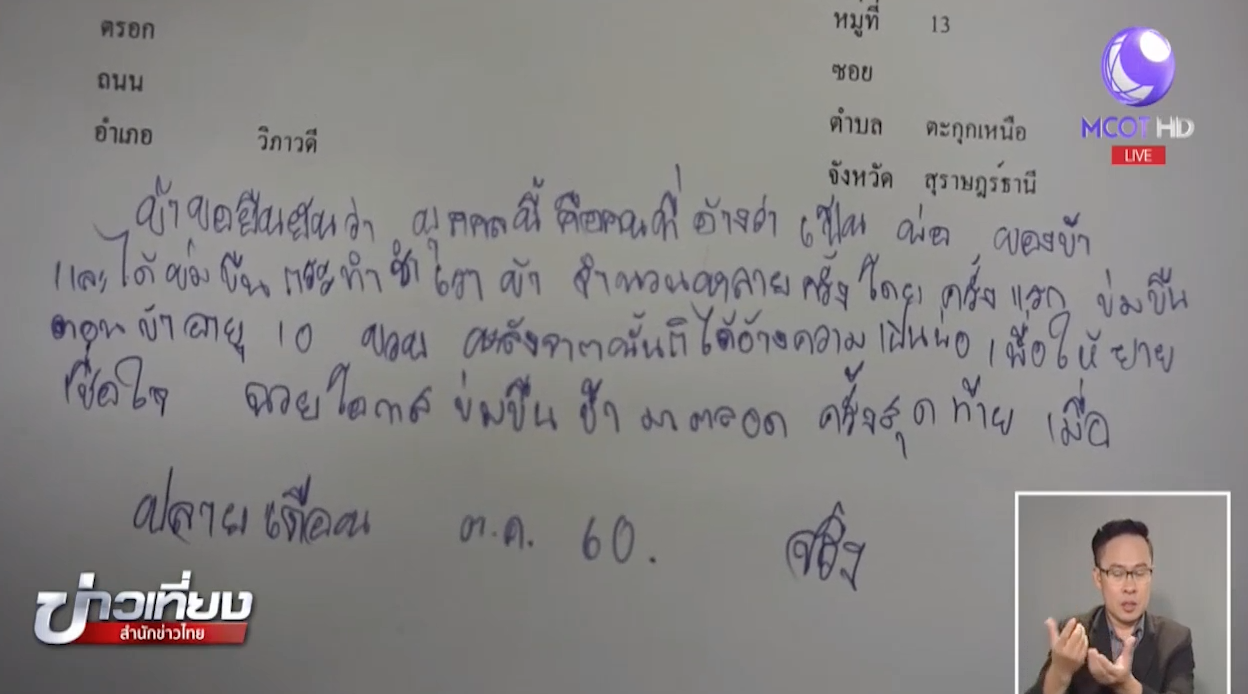 ตรอก
หมู่ที่ 13
ถนน
ซอย
อำเภอ วิภาวดี
ตำบล ตะกุกเหนือ
จังหวัด สุราษฎร์ธานี
ข้าขอยืนยันว่า บุคคลนี้ คือคนที่ อ้างว่า เป็น พ่อ ของข้า
และได้ข่มขืน กระทำชำเราข้า จำนวนหลายครั้ง โดย ครั้งแรก ข่มขืน
ตอนข้าอายุ 10 ขวบ หลังจากนั้นก็ได้อ้างความเป็นพ่อ เพื่อให้ยาย
เชื่อใจ ฉวยโอกาส ข่มขืน ข้า มาตลอด ครั้งสุดท้าย เมื่อ
ปลายเดือน ต.ค. 60. จริง
MCOT HD
LIVE
ข่าวเที่ยง
สำนักข่าวไทย